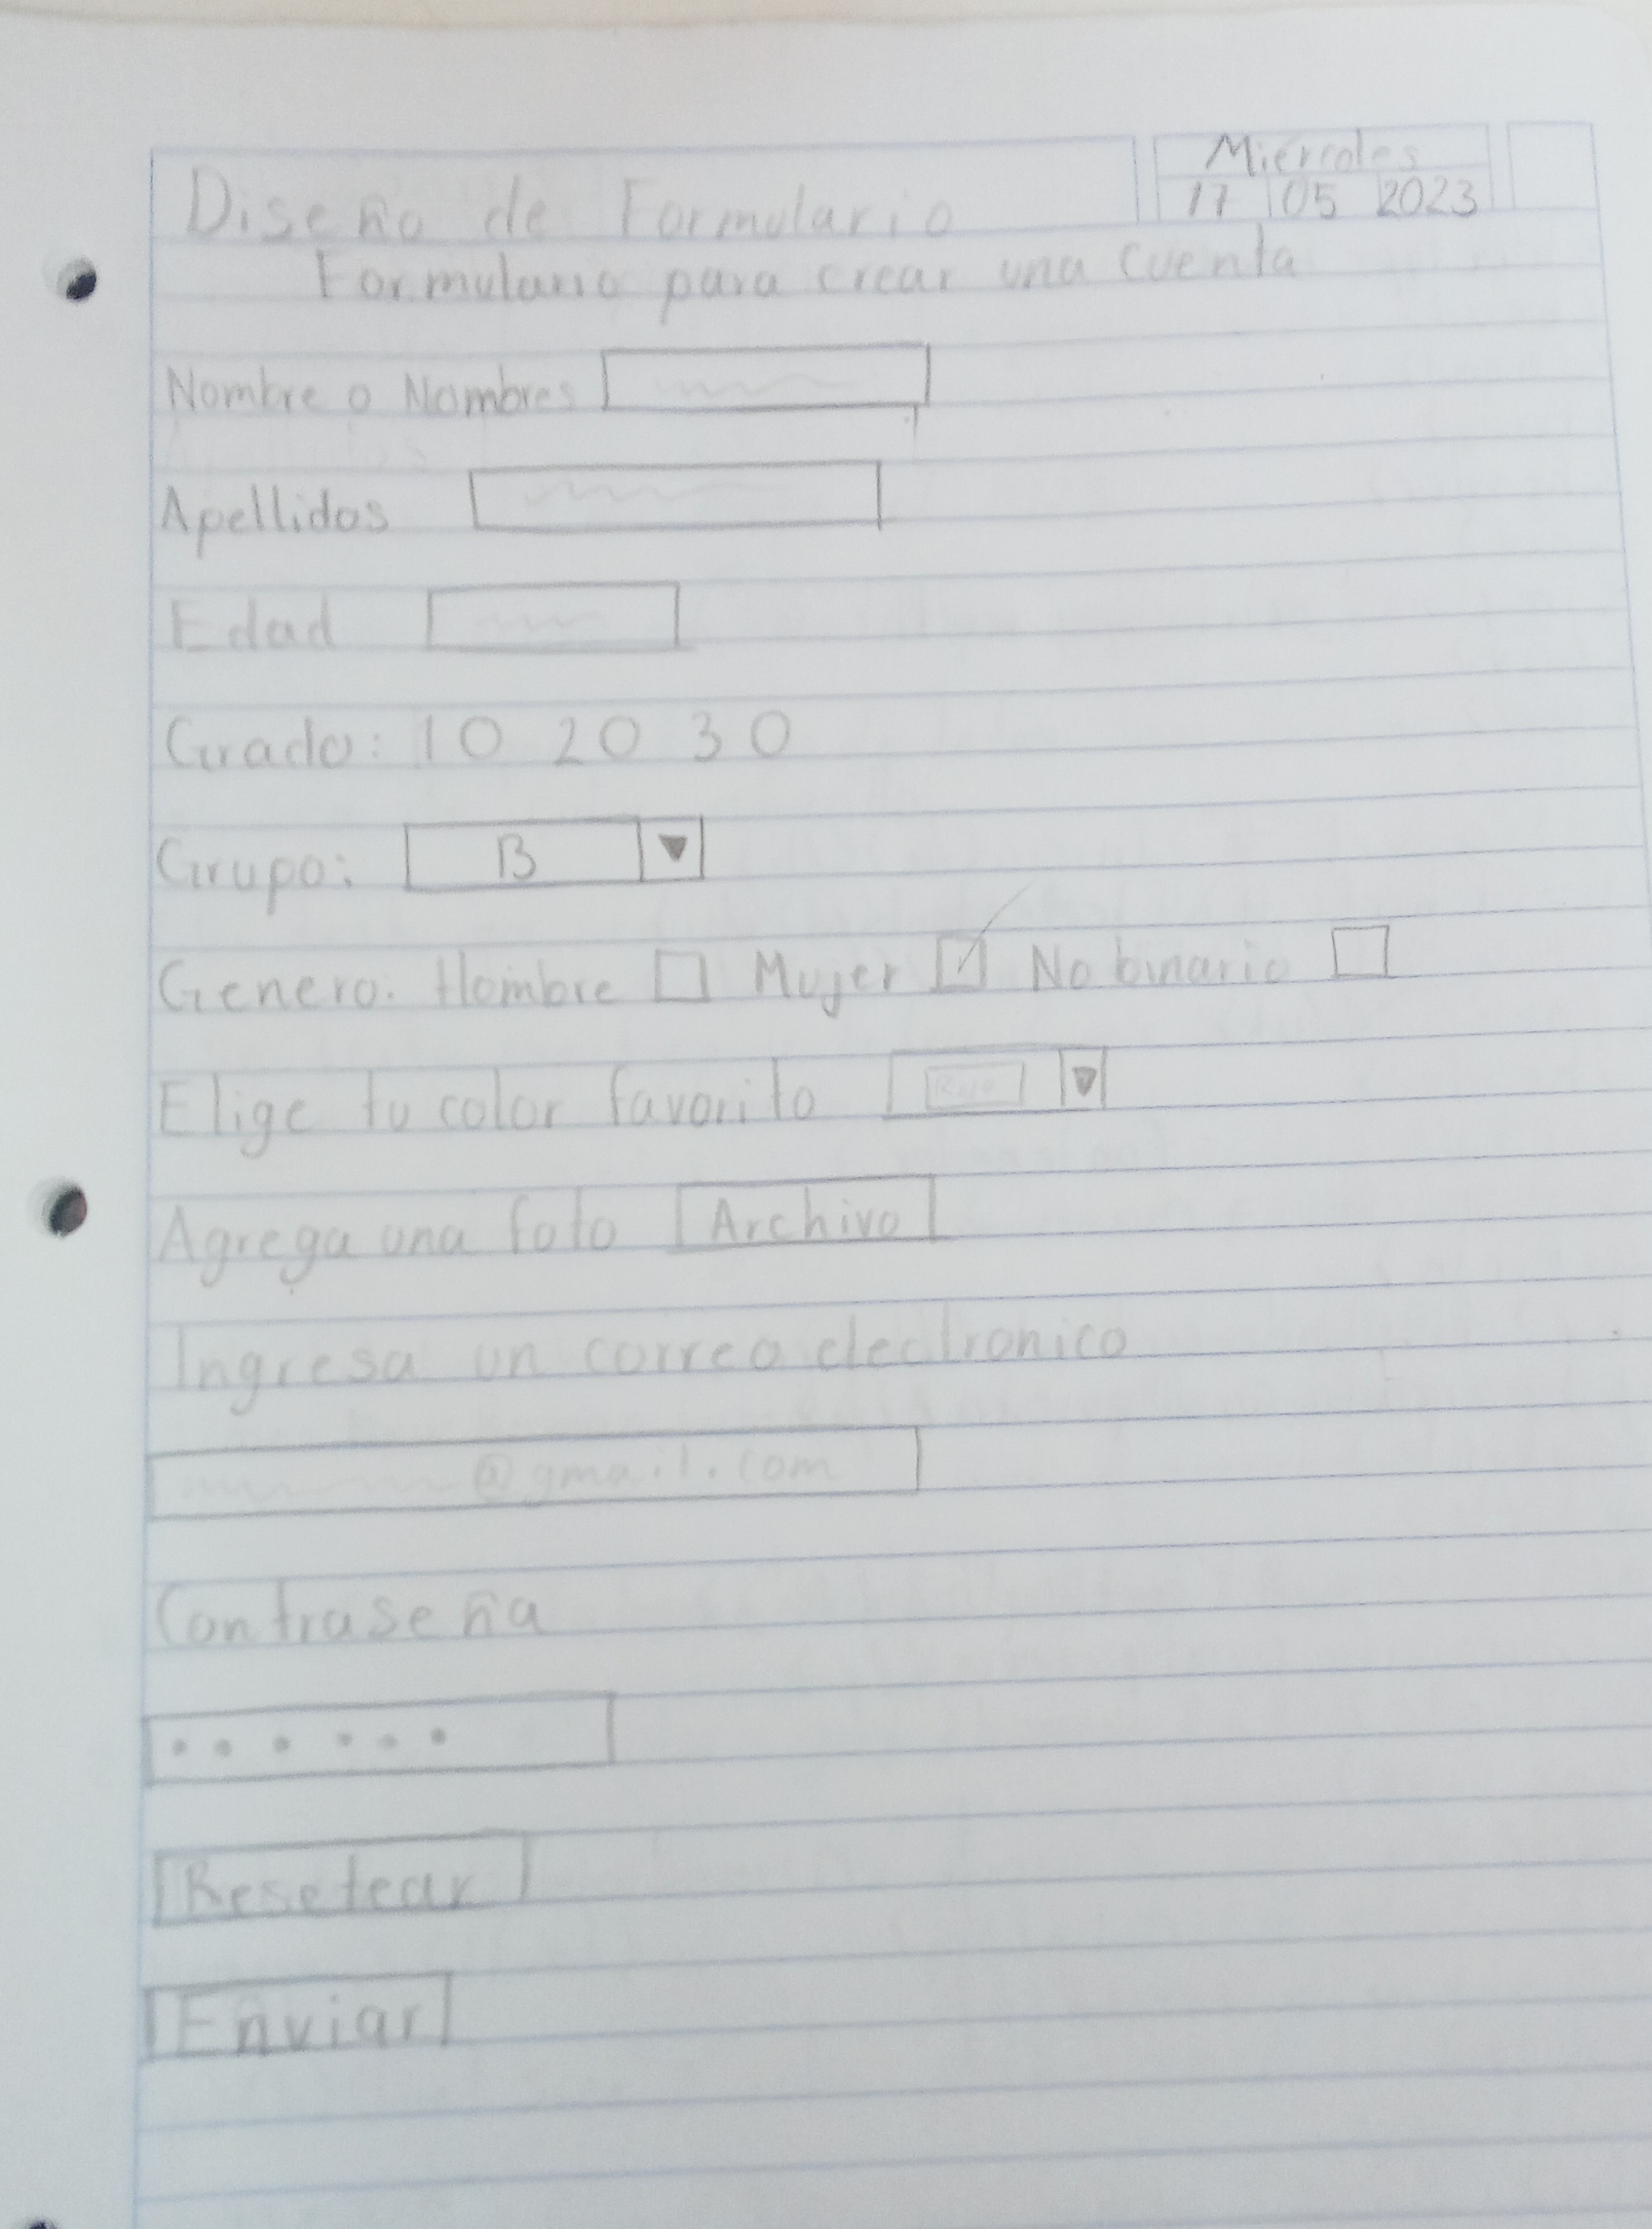 Miércoles
17 05 2023
Diseño de Formulario
Formulario para crear una cuenta
Nombre o Nombres
Apellidos
Edad
Grado: 1 O 2 O 3 O
Grupo: B ▼
Genero: Hombre Mujer No binario
Elige tu color favorito Rojo
Agrega una foto Archivo
Ingresa un correo electronico
@gmail.com
Contraseña
......
Resetear
Enviar